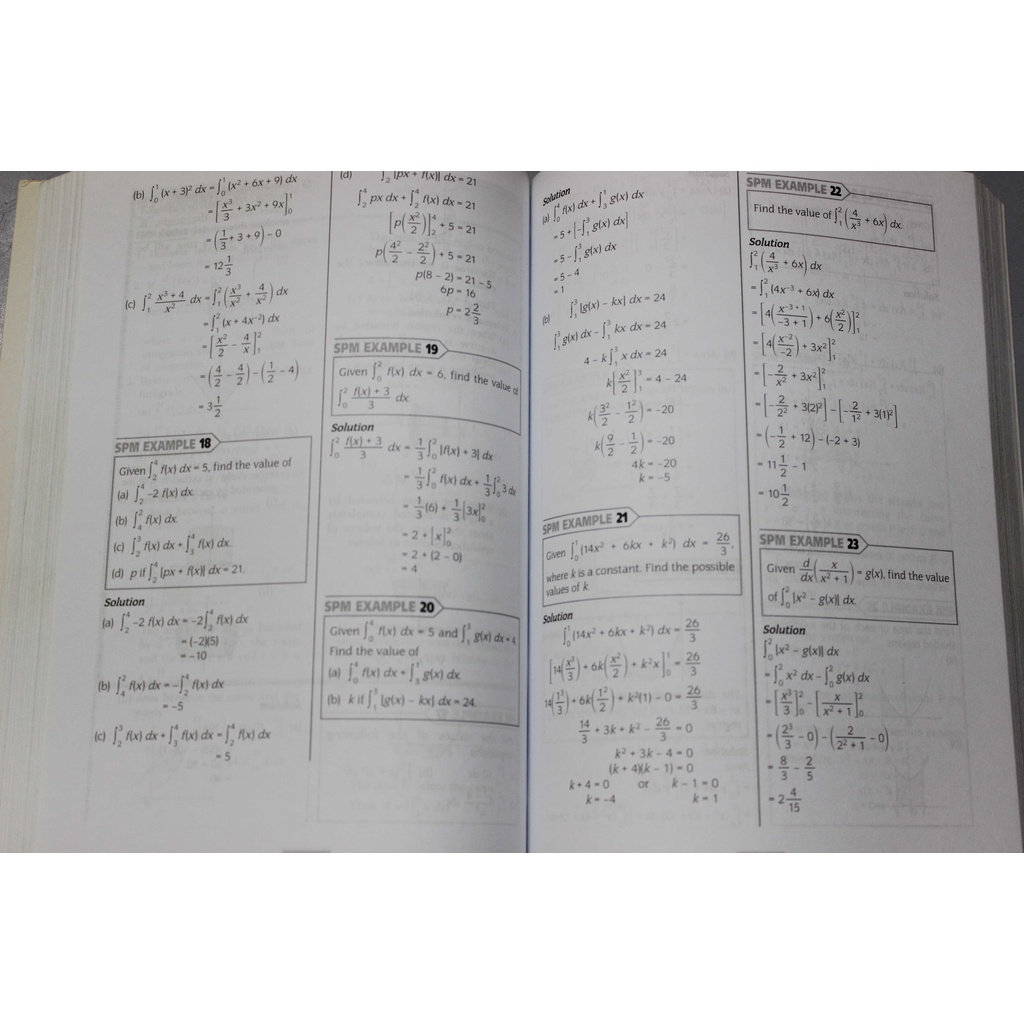 (b) ∫₀¹ (x + 3)² dx = ∫₀¹ (x² + 6x + 9) dx
= [x³/3 + 3x² + 9x]₀¹
= (1/3 + 3 + 9) − 0
= 12 1/3
(c) ∫₁² (x³ + 4)/x² dx = ∫₁² (x³/x² + 4/x²) dx
= ∫₁² (x + 4x⁻²) dx
= [x²/2 − 4/x]₁²
= (4/2 − 4/2) − (1/2 − 4)
= 3 1/2
SPM EXAMPLE 18
Given ∫₂⁴ f(x) dx = 5, find the value of
(a) ∫₂⁴ −2 f(x) dx.
(b) ∫₄² f(x) dx.
(c) ∫₂³ f(x) dx + ∫₃⁴ f(x) dx.
(d) p if ∫₂⁴ [px + f(x)] dx = 21.
Solution
(a) ∫₂⁴ −2 f(x) dx = −2∫₂⁴ f(x) dx
= (−2)(5)
= −10
(b) ∫₄² f(x) dx = −∫₂⁴ f(x) dx
= −5
(c) ∫₂³ f(x) dx + ∫₃⁴ f(x) dx = ∫₂⁴ f(x) dx
= 5
(d) ∫₂ [px + f(x)] dx = 21
∫₂⁴ px dx + ∫₂⁴ f(x) dx = 21
[p(x²/2)]₂⁴ + 5 = 21
p(4²/2 − 2²/2) + 5 = 21
p(8 − 2) = 21 − 5
6p = 16
p = 2 2/3
SPM EXAMPLE 19
Given ∫₀² f(x) dx = 6, find the value of
∫₀² (f(x) + 3)/3 dx.
Solution
∫₀² (f(x) + 3)/3 dx = 1/3 ∫₀² [f(x) + 3] dx
= 1/3 ∫₀² f(x) dx + 1/3 ∫₀² 3 dx
= 1/3 (6) + 1/3 [3x]₀²
= 2 + [x]₀²
= 2 + (2 − 0)
= 4
SPM EXAMPLE 20
Given ∫₀⁴ f(x) dx = 5 and ∫₁³ g(x) dx = 4.
Find the value of
(a) ∫₀⁴ f(x) dx + ∫₃¹ g(x) dx.
(b) k if ∫₁³ [g(x) − kx] dx = 24.
Solution
(a) ∫₀⁴ f(x) dx + ∫₃¹ g(x) dx
= 5 + [−∫₁³ g(x) dx]
= 5 − ∫₁³ g(x) dx
= 5 − 4
= 1
(b) ∫₁³ [g(x) − kx] dx = 24
∫₁³ g(x) dx − ∫₁³ kx dx = 24
4 − k∫₁³ x dx = 24
k[x²/2]₁³ = 4 − 24
k(3²/2 − 1²/2) = −20
k(9/2 − 1/2) = −20
4k = −20
k = −5
SPM EXAMPLE 21
Given ∫₀¹ (14x² + 6kx + k²) dx = 26/3,
where k is a constant. Find the possible
values of k.
Solution
∫₀¹ (14x² + 6kx + k²) dx = 26/3
[14(x³/3) + 6k(x²/2) + k²x]₀¹ = 26/3
14(1³/3) + 6k(1²/2) + k²(1) − 0 = 26/3
14/3 + 3k + k² − 26/3 = 0
k² + 3k − 4 = 0
(k + 4)(k − 1) = 0
k + 4 = 0 or k − 1 = 0
k = −4 k = 1
SPM EXAMPLE 22
Find the value of ∫₁² (4/x³ + 6x) dx.
Solution
∫₁² (4/x³ + 6x) dx
= ∫₁² (4x⁻³ + 6x) dx
= [4(x⁻³⁺¹/(−3 + 1)) + 6(x²/2)]₁²
= [4(x⁻²/−2) + 3x²]₁²
= [−2/x² + 3x²]₁²
= [−2/2² + 3(2)²] − [−2/1² + 3(1)²]
= (−1/2 + 12) − (−2 + 3)
= 11 1/2 − 1
= 10 1/2
SPM EXAMPLE 23
Given d/dx (x/(x² + 1)) = g(x), find the value
of ∫₀² [x² − g(x)] dx.
Solution
∫₀² [x² − g(x)] dx
= ∫₀² x² dx − ∫₀² g(x) dx
= [x³/3]₀² − [x/(x² + 1)]₀²
= (2³/3 − 0) − (2/(2² + 1) − 0)
= 8/3 − 2/5
= 2 4/15